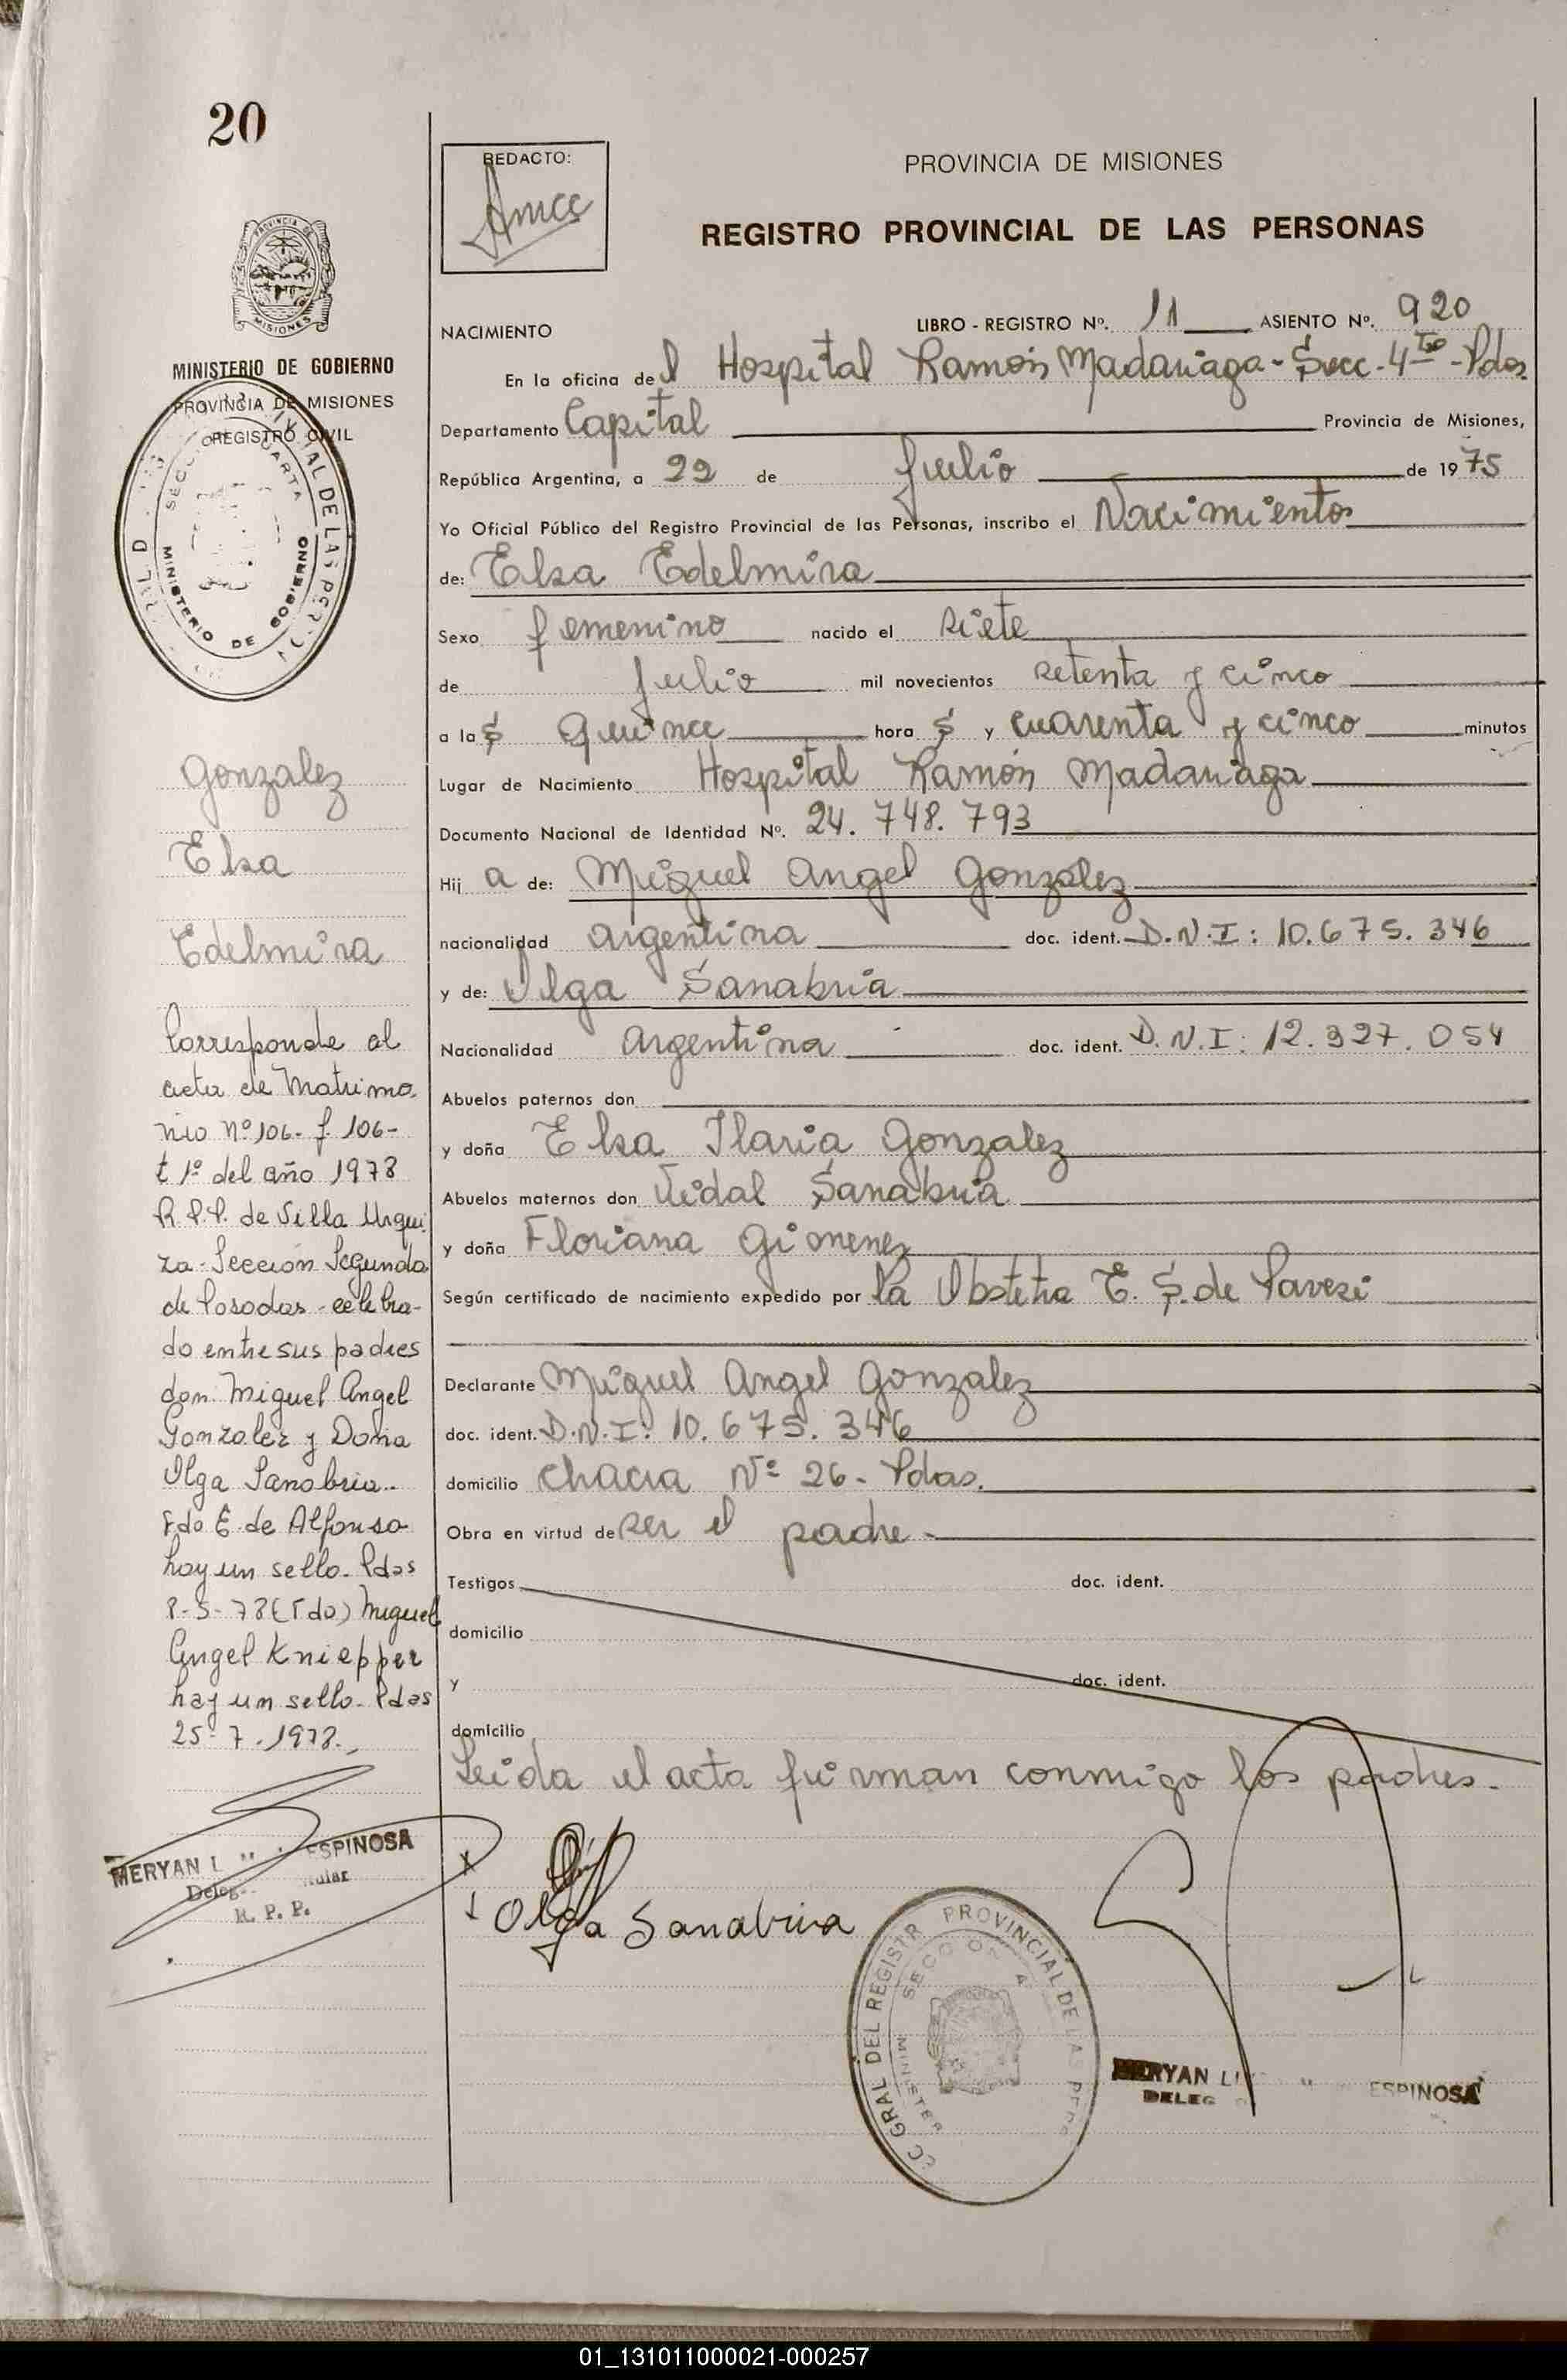 20
MINISTERIO DE GOBIERNO
PROVINCIA DE MISIONES
REGISTRO CIVIL
Gonzalez
Elsa
Edelmira
Corresponde al
acta de Matrimo-
nio Nº 106- f. 106-
t 1º del año 1978
R.P.P. de Villa Urqui
za-Sección Segunda
de Posadas-celebra-
do entre sus padres
don Miguel Angel
Gonzalez y Doña
Olga Sanabria..
Fdo E de Alfonso
hay un sello. Pdas
8-5-78 (Fdo) Miguel
Angel Kniepper
hay un sello. Pdas
25-7.1978.
MERYAN ESPINOSA
R. P. P.
REDACTO:
PROVINCIA DE MISIONES
REGISTRO PROVINCIAL DE LAS PERSONAS
NACIMIENTO LIBRO - REGISTRO Nº. 11 ASIENTO Nº. 920
En la oficina del Hospital Ramón Madariaga - Secc. 4ta - Pdas.
Departamento Capital Provincia de Misiones,
República Argentina, a 22 de Julio de 1975
Yo Oficial Público del Registro Provincial de las Personas, inscribo el Nacimiento
de: Elsa Edelmira
Sexo femenino nacido el siete
de Julio mil novecientos setenta y cinco
a las quince horas y cuarenta y cinco minutos
Lugar de Nacimiento Hospital Ramón Madariaga
Documento Nacional de Identidad Nº. 24. 748. 793
Hij a de: Miguel Angel Gonzalez
nacionalidad argentina doc. ident. D.N.I: 10.675.346
y de: Olga Sanabria
Nacionalidad argentina doc. ident. D.N.I: 12.327.054
Abuelos paternos don
y doña Elsa Ilaria Gonzalez
Abuelos maternos don Vidal Sanabria
y doña Floriana Gimenez
Según certificado de nacimiento expedido por la Obstetra E. S. de Pavesi
Declarante Miguel Angel Gonzalez
doc. ident. D.N.I: 10.675.346
domicilio chacra Nº 26 - Pdas.
Obra en virtud de ser el padre -
Testigos doc. ident.
domicilio
y doc. ident.
domicilio
Leida el acta firman conmigo los padres.
Olga Sanabria
MERYAN ESPINOSA
01_131011000021-000257